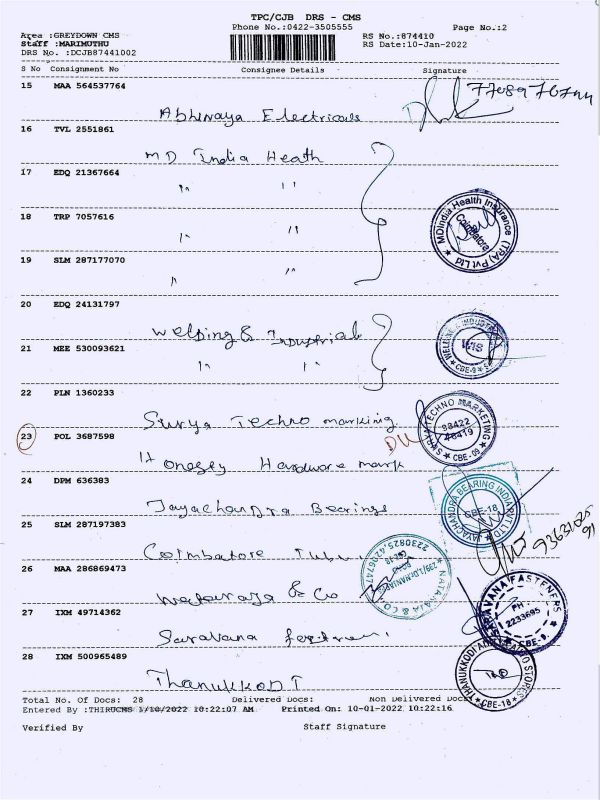 TPC/CJB DRS - CMS
Phone No.:0422-3505555 Page No.:2
Area :GREYDOWN CMS RS No.:874410
Staff :MARIMUTHU RS Date:10-Jan-2022
DRS No. :DCJB87441002
S No Consignment No Consignee Details Signature
15 MAA 564537764
Abhinaya Electricals
16 TVL 2551861
MD India Heath
17 EDQ 21367664
" "
18 TRP 7057616
" "
19 SLM 287177070
" "
20 EDQ 24131797
Welding & Industrial
21 MEE 530093621
" "
22 PLN 1360233
Surya Techno marking
23 POL 3687598
Hardware mark
24 DPM 636383
Jayachandra Bearings
25 SLM 287197383
Coimbatore Tube
26 MAA 286869473
& Co
27 IXM 49714362
Saravana
28 IXM 500965489
Thanukkodi
MDIndia Health Insurance (TPA) Pvt Ltd
Coimbatore
CBE-9
SURYA TECHNO MARKETING
CBE-09
JAYACHANDRA BEARING INDIA PVT LTD
CBE-18
NATARAJA & CO
SARAVANA FASTENERS
PH:
2233695
CBE-9.
CBE-18
Total No. Of Docs: 28 Delivered Docs: Non Delivered Docs:
Entered By :THIRUCMS 1/10/2022 10:22:07 AM Printed On: 10-01-2022 10:22:16
Verified By Staff Signature